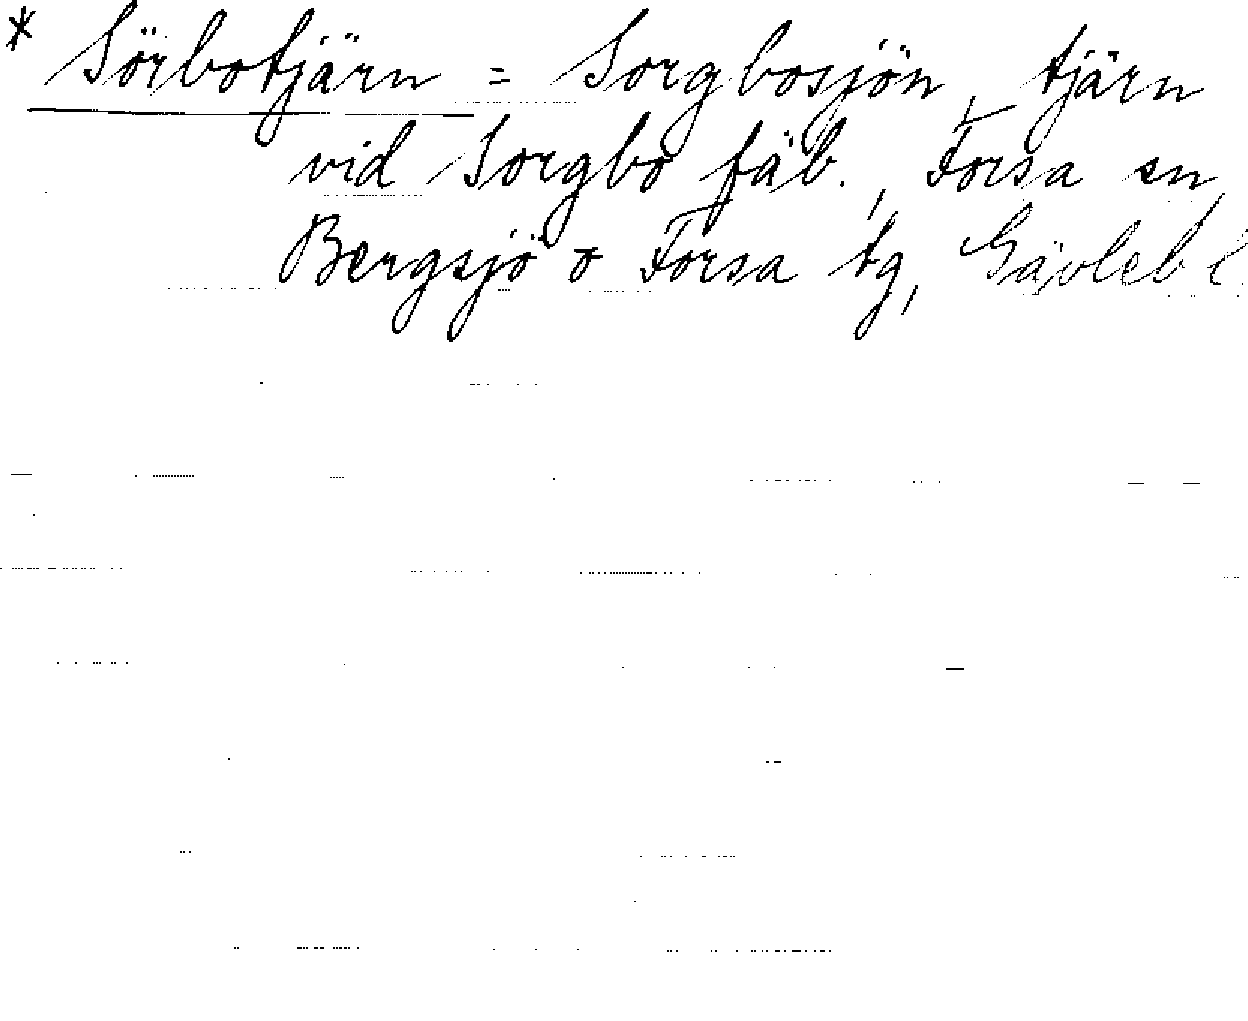 * Sörbotjärn = Sorgbosjön, tjärn
vid Sorgbo fäb., Forsa sn,
Bergsjö o Forsa tg, Gävleb l.